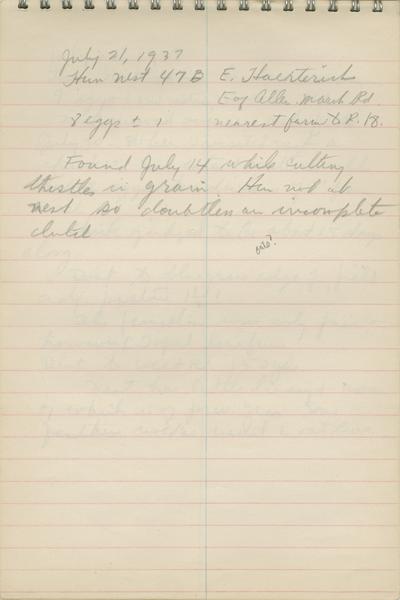 July 21, 1937
Hun nest 47B E. Haerterich
E of Allen. Marsh Rd.
8 eggs ± 1 nearest farm to R. 18.
Found July 14 while cutting
thistles in grain Hun not at
nest so doubtless an incomplete
clutch
oats?